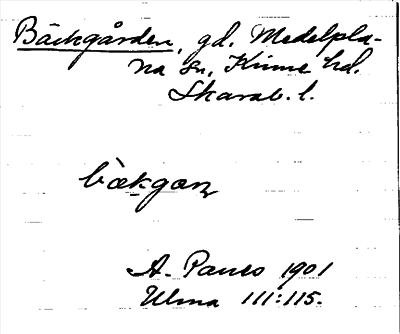 Bäckgården, gd. Medelpla-
na sn, Kinne hd.
Skarab. l.
bækgaɳ
A. Pauss 1901
Ulma 111:115.